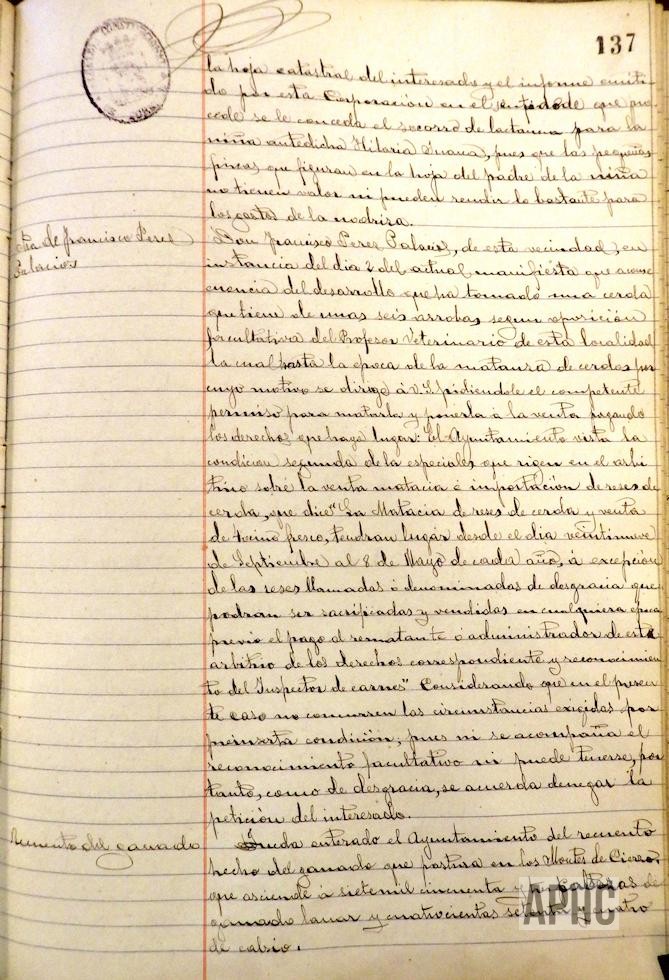 137
la hoja catastral del interesado y el informe emiti
do por esta Corporación en el sentido de que pro
cede se le conceda el socorro de lactancia para la
niña antedicha Hilaria Juana, pues que las pequeñas
fincas que figuran en la hoja del padre de la niña
no tienen valor ni pueden rendir lo bastante para
los gastos de la nodriza.
de Francisco Perez
Palacios
Don Francisco Perez Palacios, de esta vecindad, en
instancia del dia 2 del actual manifiesta que a conse
cuencia del desarrollo que ha tomado una cerda
que tiene de unas seis arrobas segun oposición
facultativa del Profesor Veterinario de esta localidad
la cual hasta la época de la matanza de cerdos por
cuyo motivo se dirige á V.S. pidiendole el competente
permiso para matarla y ponerla á la venta pagando
los derechos que haya lugar: El Ayuntamiento vista la
condicion segunda de la especiales que rigen en el arbi
trio sobre la venta matacia é importación de reses de
cerda, que dice "La Matacia de reses de cerda y venta
de tocino fresco, tendran lugar desde el dia veintinueve
de Septiembre al 8 de Mayo de cada año, á excepción
de las reses llamadas ó denominadas de desgracia que
podran ser sacrificadas y vendidas en cualquiera época
previo el pago al rematante ó administrador de este
arbitrio de los derechos correspondiente y reconocimien
to del Inspector de carnes" Considerando que en el presen
te caso no concurren las circunstancias exigidas por
preinserta condición, pues ni se acompaña el
reconocimiento facultativo ni puede tenerse, por
tanto, como de desgracia, se acuerda denegar la
petición del interesado.
Recuento del ganado
Queda enterado el Ayuntamiento del recuento
hecho del ganado que pastura en los Montes de
que asciende á siete mil cincuenta y cabezas de
ganado lanar y cuatrocientas setenta y cuatro
de cabrio.
APHC